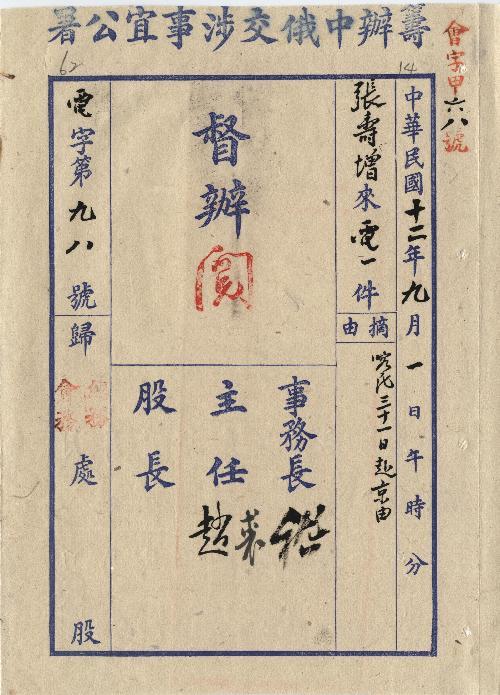 籌辦中俄交涉事宜公署
會字甲六八號
14
62
中華民國十二年九月一日午時分
張壽增來電一件
摘由
三十一日赴京由
督辦
閱
事務長
主任
股長
趙
電字第九八號
歸
會務
處
股